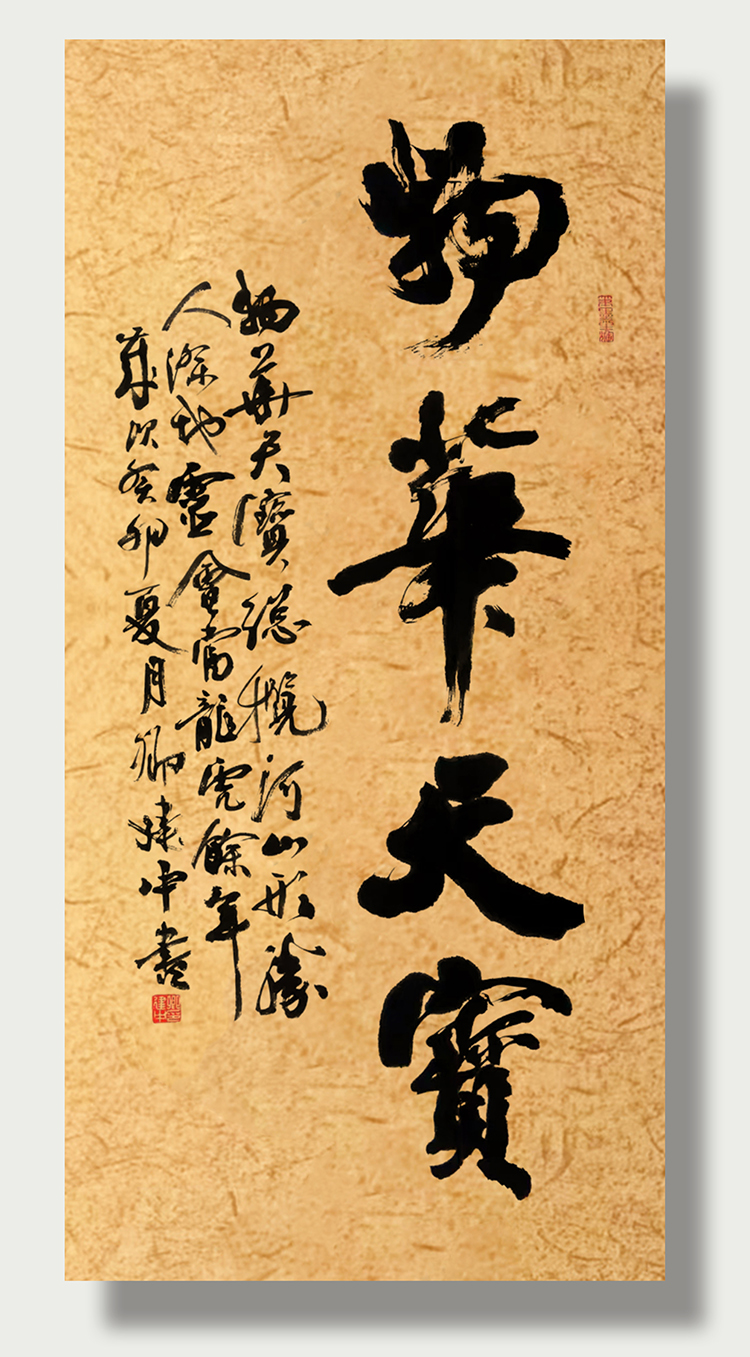 物華天寶
物華天寶總攬河山形勝
人深地靈會當龍虎餘年
歲次癸卯夏月鄉建中書